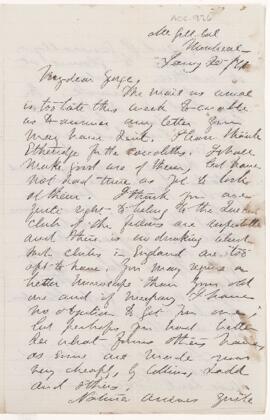 ACC. 926
McGill Col
Montreal
Jany 20 /71
My dear George,
The mail as usual
is too late this week to enable
us to answer any letter you
may have sent. Please thank
Etheridge for the corals. I shall
make good use of them, but have
not had time as yet to look
at them. I think you are
quite right to belong to the
club if the fellows are respectable
and there is no drinking about
such clubs in England are too
apt to have. You may require a
better microscope than your old
one and if necessary I have
no objection to get you one,
but perhaps you had better
see what Johns others have
as some are made now
very cheaply, by Collins, Ladd
and others.
Nature arrives quite